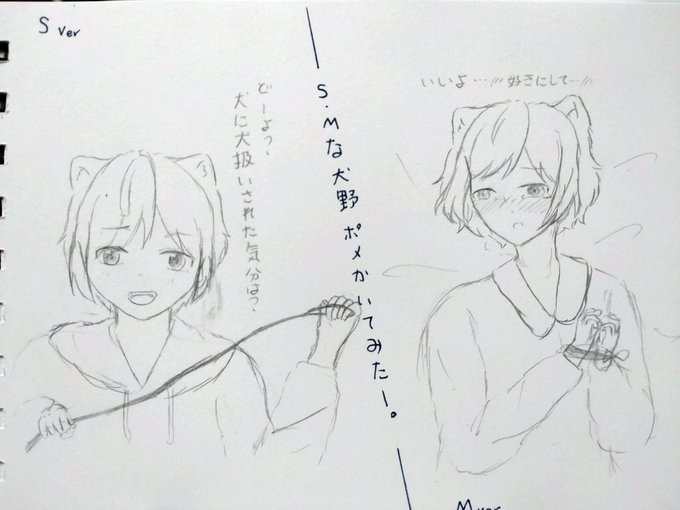 S ver
どーよっ、
犬に犬扱いされた気分はっ、
S.Mな犬野ポメかいてみたー。
いいよ…〃好きにして…〃
M ver